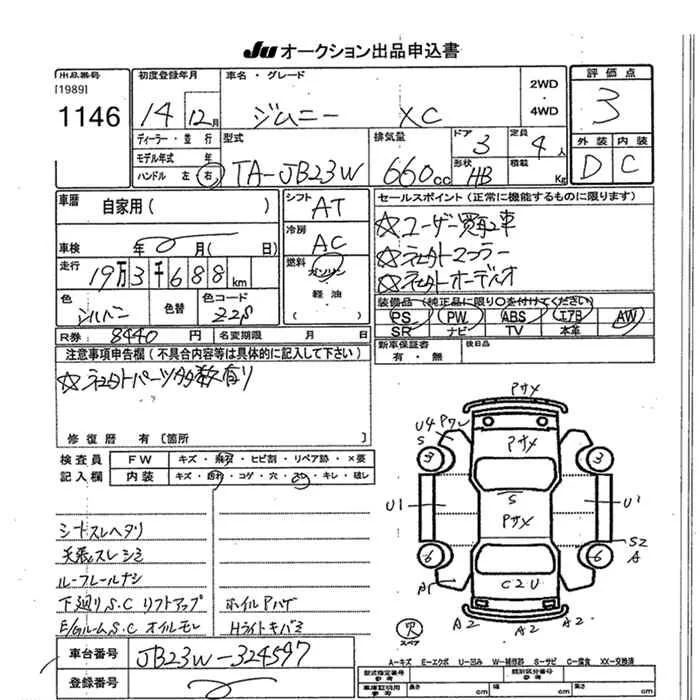 JU オークション出品申込書
出品番号
[1989]
1146
初度登録年月
14 12月
車名・グレード
ジムニー XC
2WD
・
4WD
評価点
3
外装 内装
D C
ディーラー・並行
モデル年式 年
ハンドル 左 右
型式
TA-JB23W
排気量
660cc
ドア
3
形状
HB
定員
4人
積載
Kg
車暦
自家用( )
車検 年 月( 日)
走行
19万3千688km
色
シルバー
色替
色コード
Z2S
シフト
AT
冷房
AC
燃料
ガソリン
・
軽油
・
( )
セールスポイント(正常に機能するものに限ります)
☆ユーザー買取車
☆社外マフラー
☆社外オーディオ
装備品(純正品に限り○を付けてください)
PS PW ABS エアB AW
SR ナビ TV 本革
R券 8440円 名変期限 月 日
新車保証書
有・無
後日品
注意事項申告欄(不具合内容等は具体的に記入して下さい)
☆社外パーツ多数有り
修復暦 有〔箇所 〕
検査員
記入欄
FW キズ・飛石・ヒビ割・リペア跡・×要
内装 キズ・汚れ・コゲ・穴・スレ・キレ・破レ
シートスレヘタリ
天張スレシミ
ルーフレールナシ
下廻りS.C リフトアップ ホイルPハゲ
E/GルームS.C オイルモレ Hライトキバミ
車台番号
JB23W-324597
登録番号
Pサメ
U4 Pワレ
S
Pサメ
3 3
S
U1 Pサメ U1
S2
A
6 6
A1 C2U
A2 A2 A2
欠
スペア
A-キズ E-エクボ U-凹み W-補修跡 S-サビ C-腐食 XX-交換済
型式指定番号
参考
類別区分番号
参考
車庫証明用
参考
長さ cm 幅 cm 高さ cm